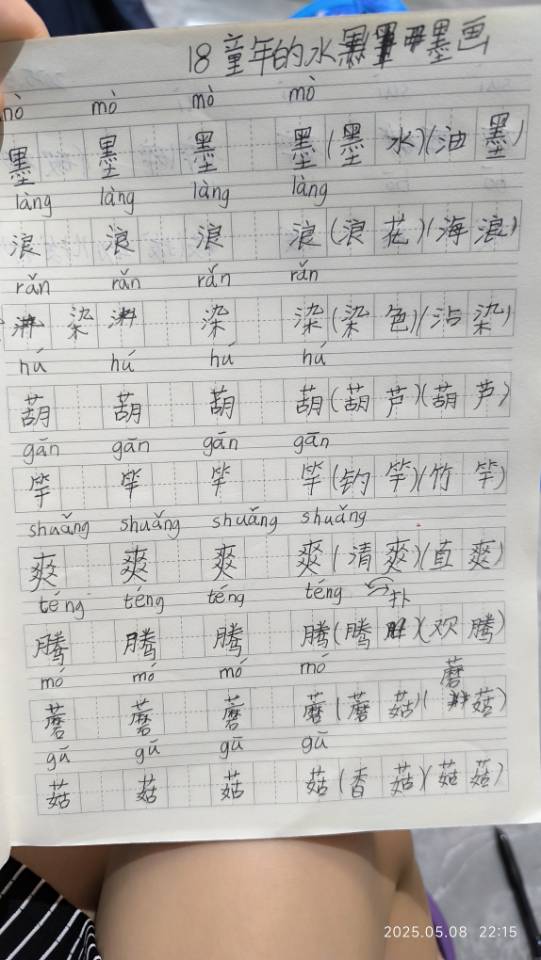 18 童年的水墨画
mò mò mò
墨 墨 墨 墨(墨水)(油墨)
làng làng làng làng
浪 浪 浪 浪(浪花)(海浪)
rǎn rǎn rǎn rǎn
染 染 染(染色)(沾染)
hú hú hú hú
葫 葫 葫 葫(葫芦)(葫芦)
gān gān gān gān
竿 竿 竿 竿(钓竿)(竹竿)
shuǎng shuǎng shuǎng shuǎng
爽 爽 爽 爽(清爽)(直爽)
téng téng téng téng 扑
腾 腾 腾 腾(腾)(欢腾)
mó mó mó mó
蘑 蘑 蘑 蘑(蘑菇)(蘑菇)
gū gū gū gū
菇 菇 菇 菇(香菇)(菇菇)
2025.05.08 22:15